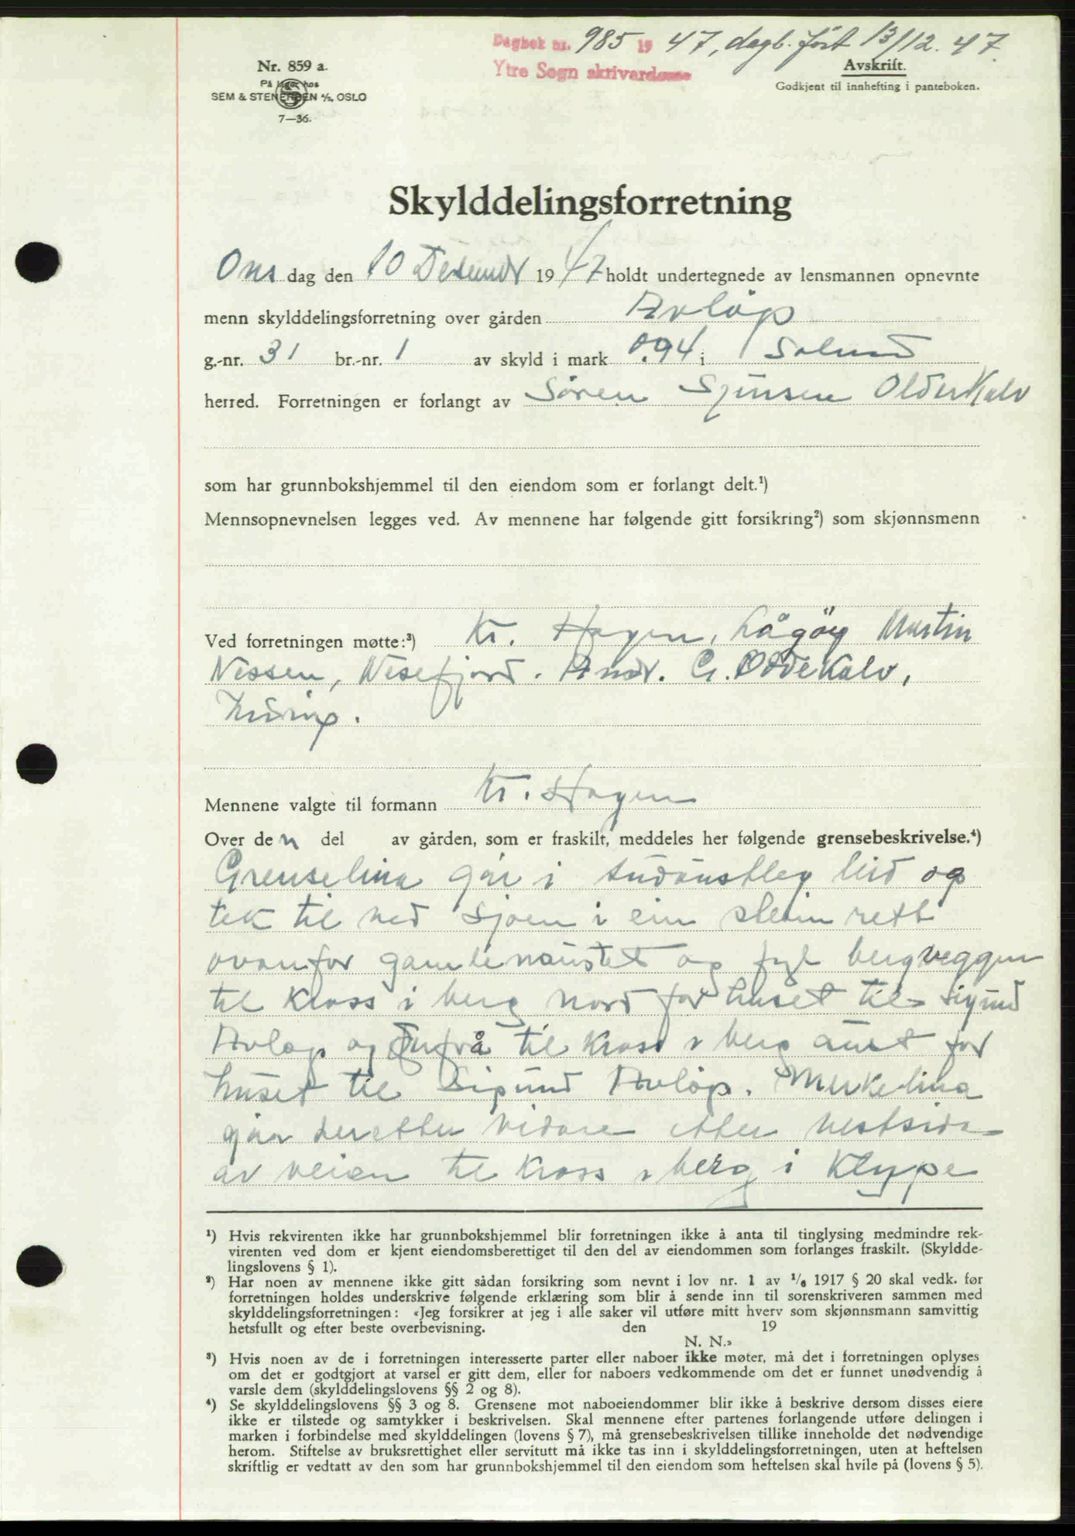 Dagbok nr. 985 19 47, dagb. ført 13/12. 47
Ytre Sogn skrivardøme
Nr. 859 a.
På lager hos
SEM & STENERSEN A/S, OSLO
7—36.
Avskrift.
Godkjent til innhefting i panteboken.
Skylddelingsforretning
Ons dag den 10 Desember 1947 holdt undertegnede av lensmannen opnevnte
menn skylddelingsforretning over gården Avløp
g.-nr. 31 br.-nr. 1 av skyld i mark 0.94 i Solund
herred. Forretningen er forlangt av Søren Sjursen Olderkalv
som har grunnbokshjemmel til den eiendom som er forlangt delt.¹)
Mennsopnevnelsen legges ved. Av mennene har følgende gitt forsikring²) som skjønnsmenn
Ved forretningen møtte:³) Kr. Hagen, Lågøy Martin
Nessen, Nesefjord. Andr. G. Oddekalv,
Mennene valgte til formann Kr. Hagen
Over den del av gården, som er fraskilt, meddeles her følgende grensebeskrivelse.⁴)
Grenselina går i sudaustleg leid og
tek til ned sjøen i ein stein rett
ovanfor gamlenaustet og fyl bergveggen
til kross i berg nord for huset til Sigurd
Avløp og frå til kross i berg aust for
huset til Sigurd Avløp. Merkelina
går deretter vidare etter vestsida
av veien til kross i berg i Klype
¹) Hvis rekvirenten ikke har grunnbokshjemmel blir forretningen ikke å anta til tinglysing medmindre rek-
virenten ved dom er kjent eiendomsberettiget til den del av eiendommen som forlanges fraskilt. (Skyldde-
lingslovens § 1).
²) Har noen av mennene ikke gitt sådan forsikring som nevnt i lov nr. 1 av ¹/₆ 1917 § 20 skal vedk. før
forretningen holdes underskrive følgende erklæring som blir å sende inn til sorenskriveren sammen med
skylddelingsforretningen: «Jeg forsikrer at jeg i alle saker vil utføre mitt hverv som skjønnsmann samvittig
hetsfullt og efter beste overbevisning. den 19
N. N.»
³) Hvis noen av de i forretningen interesserte parter eller naboer ikke møter, må det i forretningen oplyses
om det er godtgjort at varsel er gitt dem, eller for naboers vedkommende om det er funnet unødvendig å
varsle dem (skylddelingslovens §§ 2 og 8).
⁴) Se skylddelingslovens §§ 3 og 8. Grensene mot naboeiendommer blir ikke å beskrive dersom disses eiere
ikke er tilstede og samtykker i beskrivelsen. Skal mennene efter partenes forlangende utføre delingen i
marken i forbindelse med skylddelingen (lovens § 7), må grensebeskrivelsen tillike inneholde det nødvendige
herom. Stiftelse av bruksrettighet eller servitutt må ikke tas inn i skylddelingsforretningen, uten at heftelsen
skriftlig er vedtatt av den som har grunnbokshjemmel til den eiendom som heftelsen skal hvile på (lovens § 5).